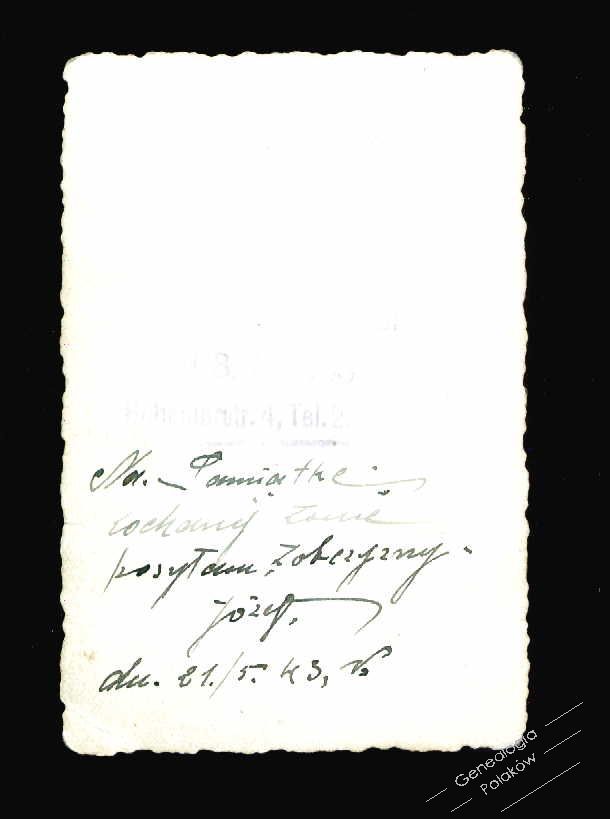 B.
str. 4, Tel. 2
Na. Pamiątkę
kochanej żonie
posyłam z obczyzny
Józef.
dn. 21./5. 43, r.
Genealogia
Polaków